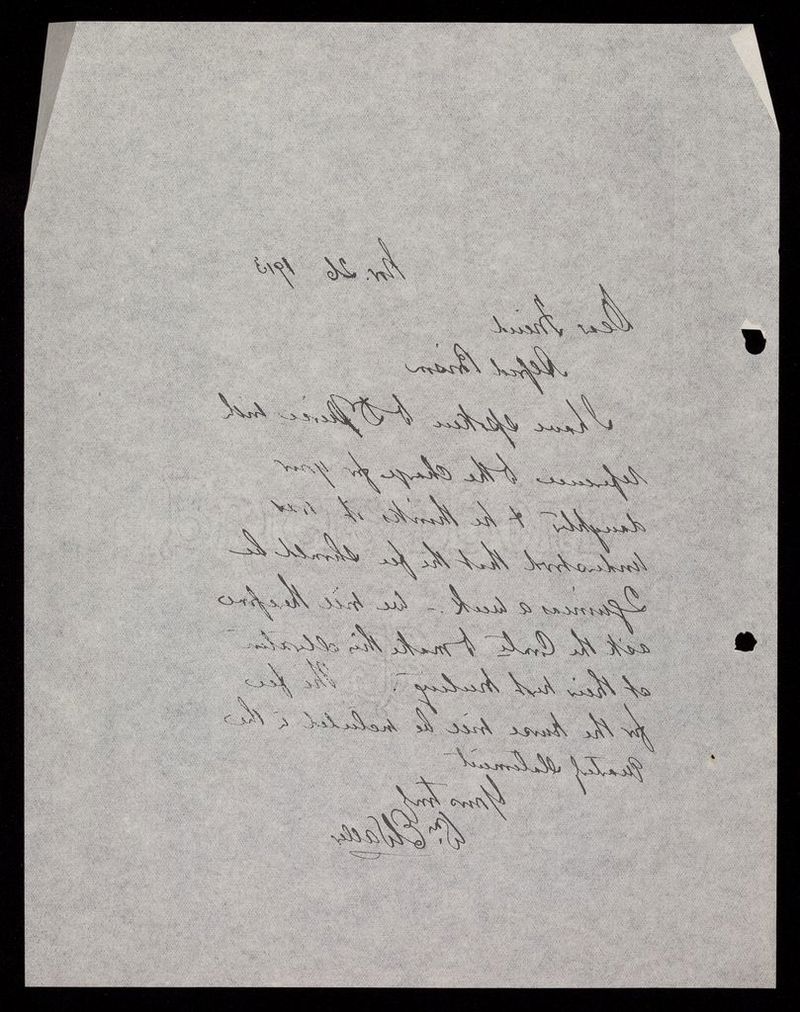 Nov. 26 1913
Dear Friend
Alfred
I have spoken to Dr Pierce with
reference to the charge for your
daughter & he thinks it was
understood that the fee should be
2 guineas a week - we will therefore
ask the Comtee to make this alteration
at their next meeting. The fee
for the nurse will be included in the
Quarterly Statement
Yours truly
Wm